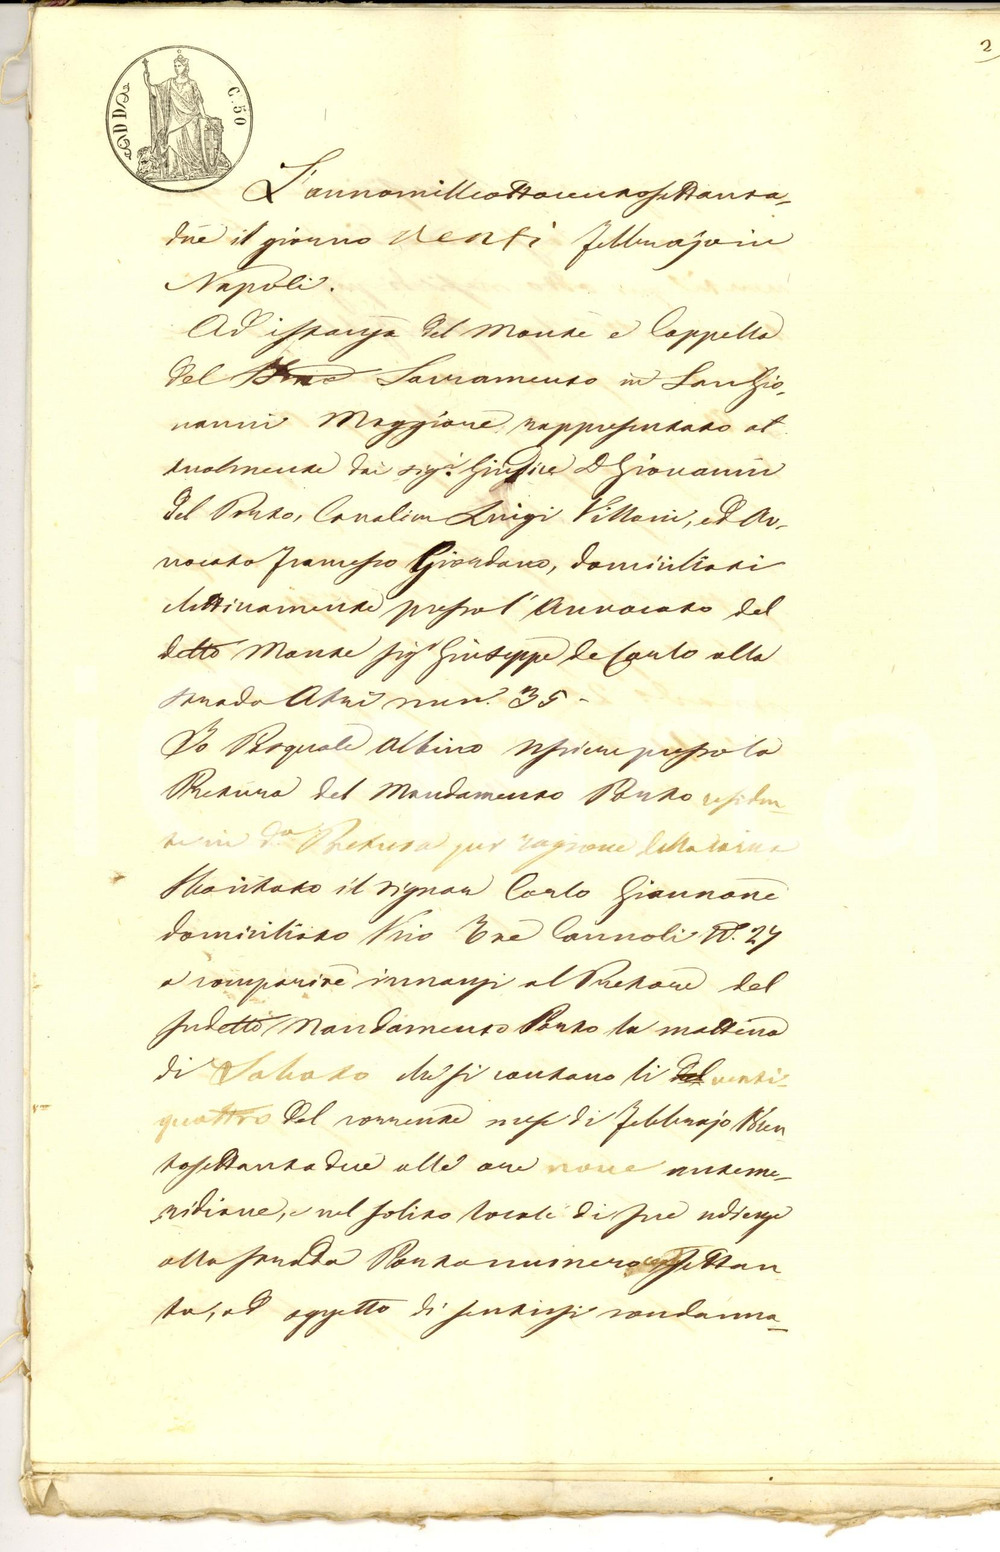 2
C. 50
L'annomilleottocentosettanta-
due il giorno venti Febbrajo in
Napoli.
Ad istanza del Monte e Cappella
del Sacramento in San Gio,
vanni Maggiore rappresentato at
tualmente dai sigri. Giudice D Giovanni
del Ponto, Cavalier Luigi Vittorii, ed Av-
vocato Francesco Giordano, domiciliati
elettivamente presso l'Avvocato del
detto Monte sigr Giuseppe de Carlo alla
strada Atri num. 35 -
Io Pasquale Albino usciere presso la
Pretura del Mandamento Porto residen-
te in da Pretura per ragione della carica
Ho citato il signor Carlo Giannone
domiciliato Vico Tre Cannoli N. 27
a comparire innanzi al Pretore del
sudetto Mandamento Porto la mattina
di Sabato che si contano li del venti-
quattro del corrente mese di Febbrajo
tosettantadue alle ore nove antime-
ridiane, e nel solito locale di sue udienze
alla strada Porto numero settan
ta, ad oggetto di sentirsi condanna-